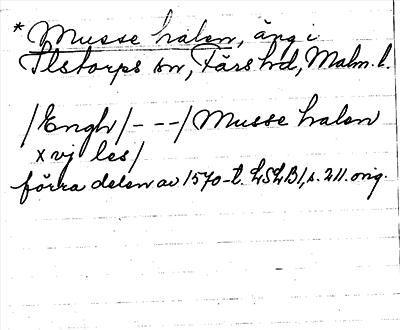 * Musse halen, äng i
Ilstorps sn, Färs hd, Malm. l.
/Engh/ - - -/ Musse halen
x vj les/
förra delen av 1570-t. LSLB1, s. 211. orig.